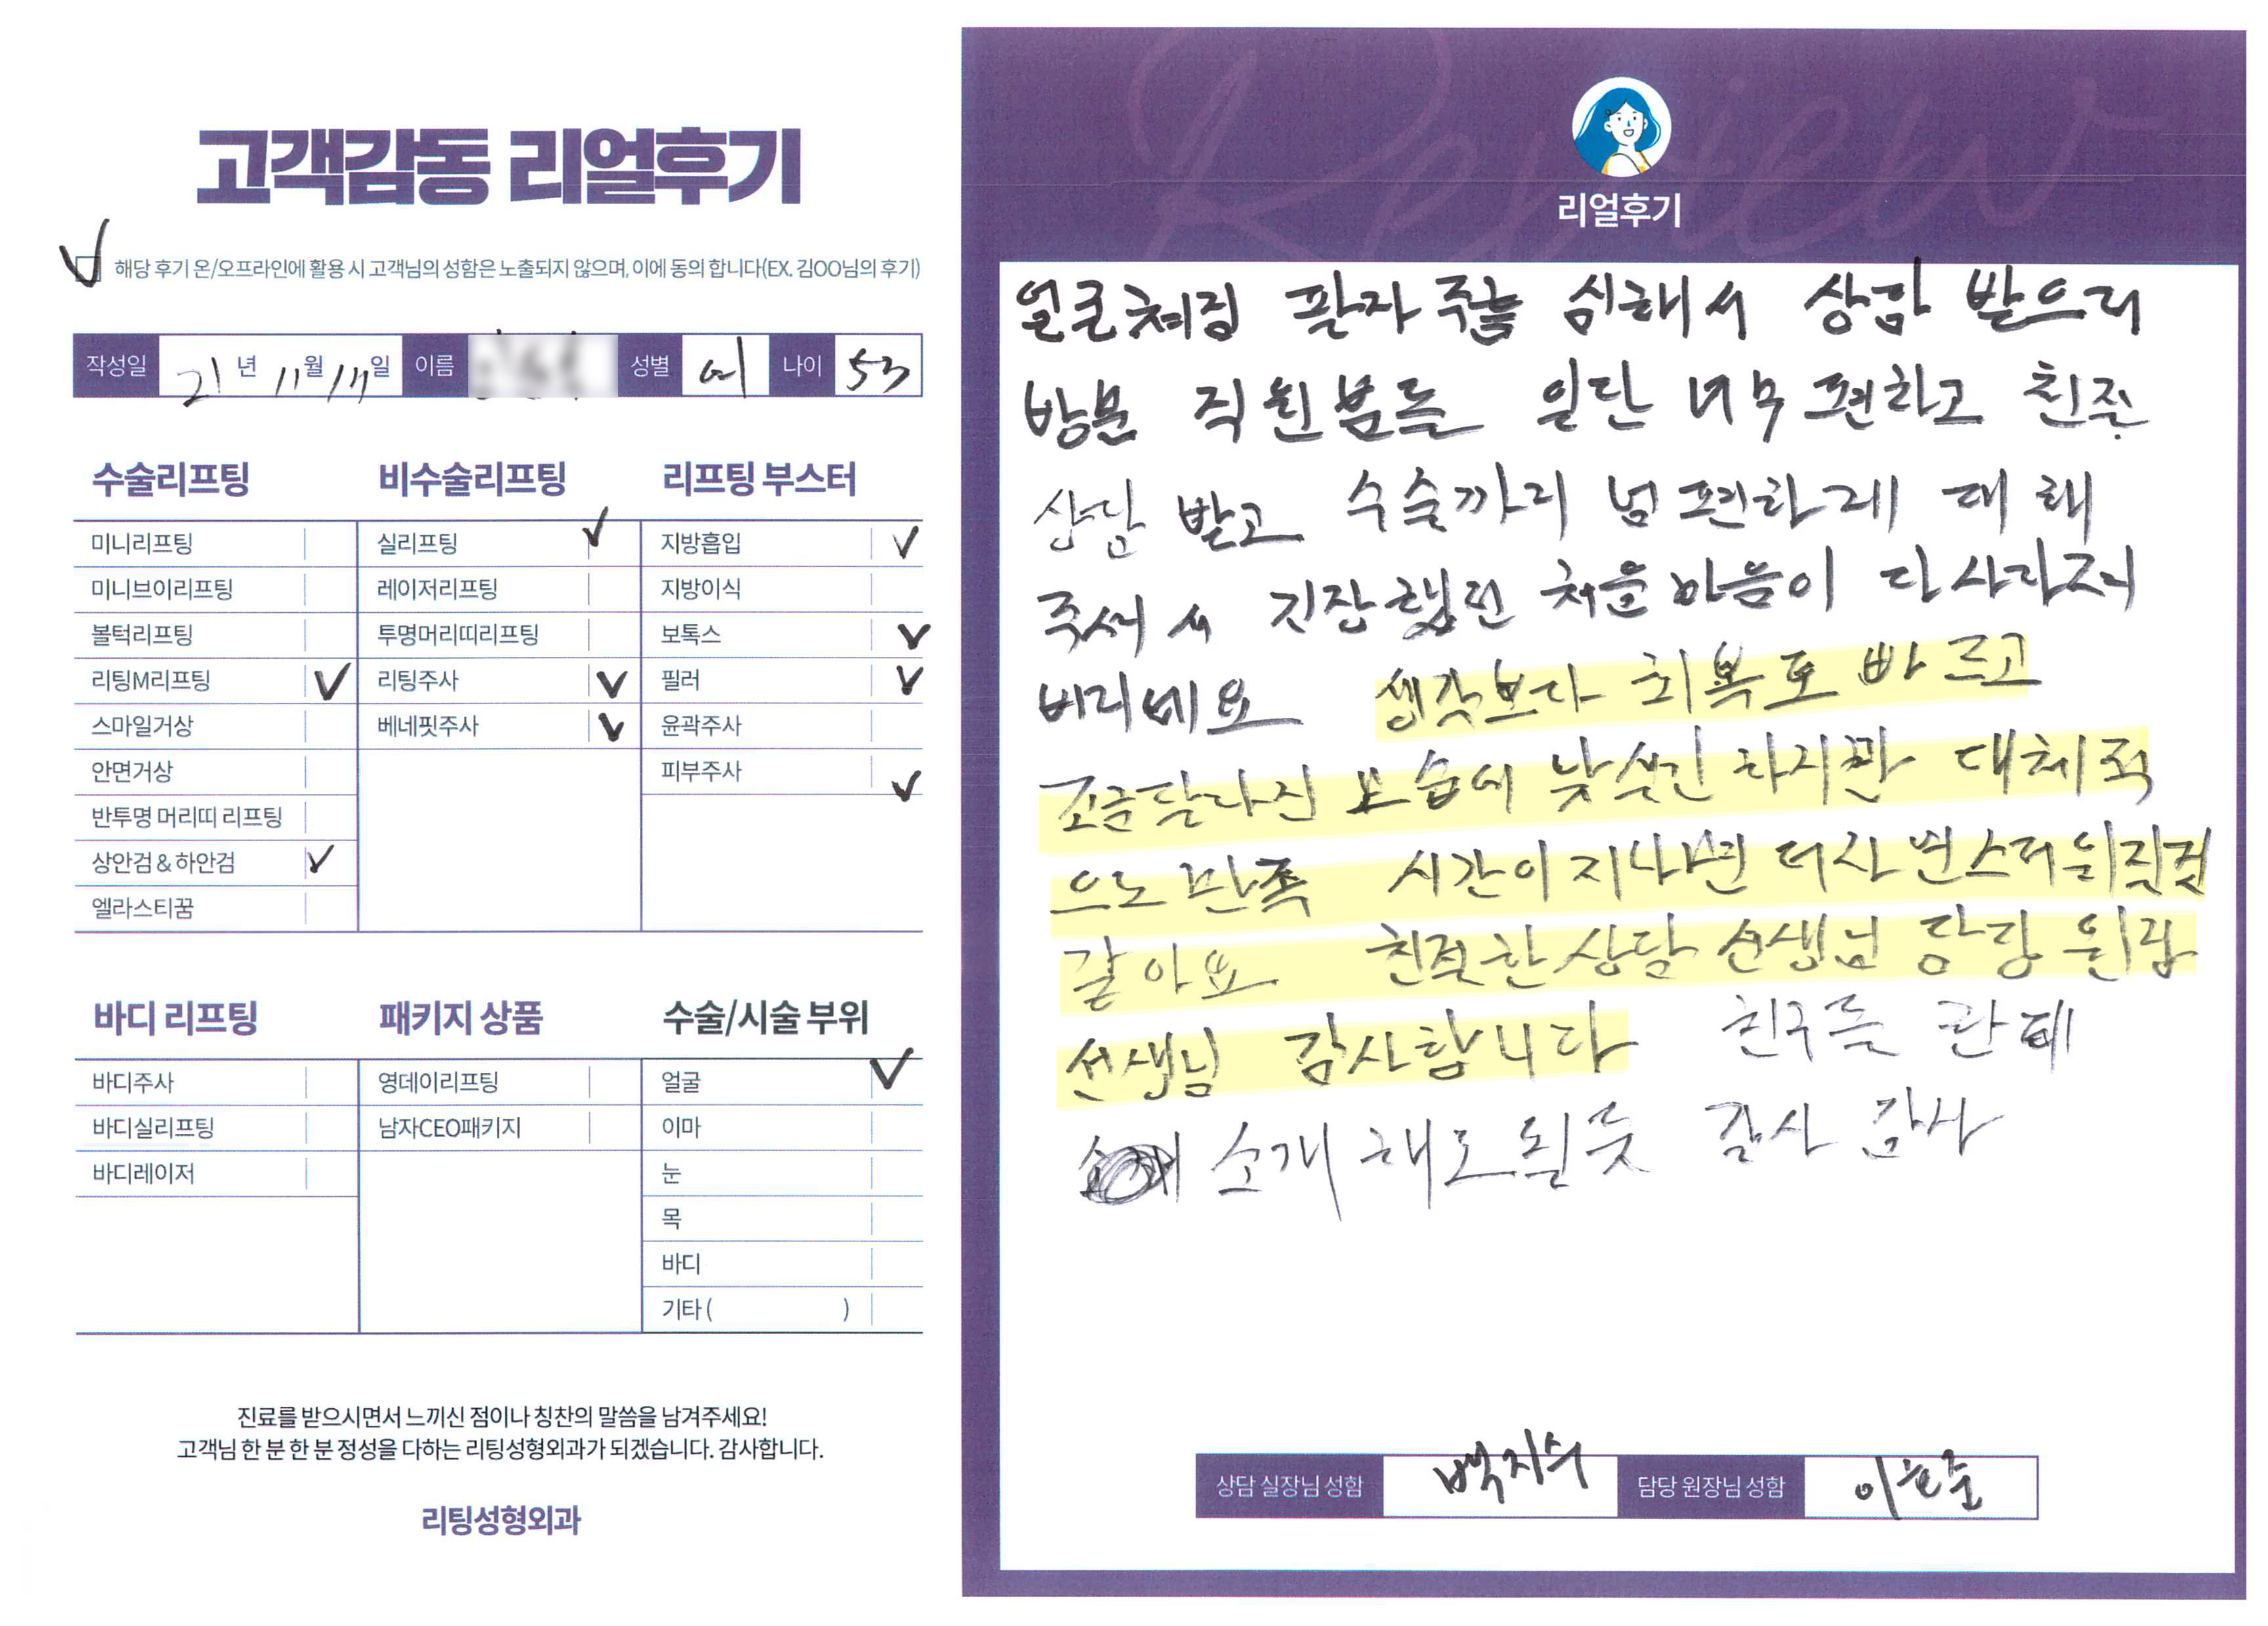 고객감동 리얼후기
해당 후기 온/오프라인에 활용 시 고객님의 성함은 노출되지 않으며, 이에 동의 합니다(EX. 김OO님의 후기)
작성일 21년 11월 17일 이름 성별 여 나이 53
수술리프팅
미니리프팅
미니브이리프팅
볼턱리프팅
리팅M리프팅
스마일거상
안면거상
반투명 머리띠 리프팅
상안검&하안검
엘라스티꿈
비수술리프팅
실리프팅
레이저리프팅
투명머리띠리프팅
리팅주사
베네핏주사
리프팅 부스터
지방흡입
지방이식
보톡스
필러
윤곽주사
피부주사
바디 리프팅
바디주사
바디실리프팅
바디레이저
패키지 상품
영데이리프팅
남자CEO패키지
수술/시술 부위
얼굴
이마
눈
목
바디
기타 ( )
진료를 받으시면서 느끼신 점이나 칭찬의 말씀을 남겨주세요!
고객님 한 분 한 분 정성을 다하는 리팅성형외과가 되겠습니다. 감사합니다.
리팅성형외과
Review
리얼후기
얼굴처짐 팔자 주늠 심해서 상감 받으러
방문 직원분들 일단 너무 편하고 친주
상담 받고 수술까지 넘 편하게 대해
주셔서 긴장했던 처음 마음이 다 사라져
버리네요 생각보다 회복도 빠르고
조금 달라진 모습에 낯설긴 하지만 대체적
으로 만족 시간이 지나면 더 자연스러워질것
같아요 친절한 상담 선생님 담당 원장
선생님 감사합니다 친구들 한테
소개 해도 될듯 감사 감사
상담 실장님 성함 백지수 담당 원장님 성함